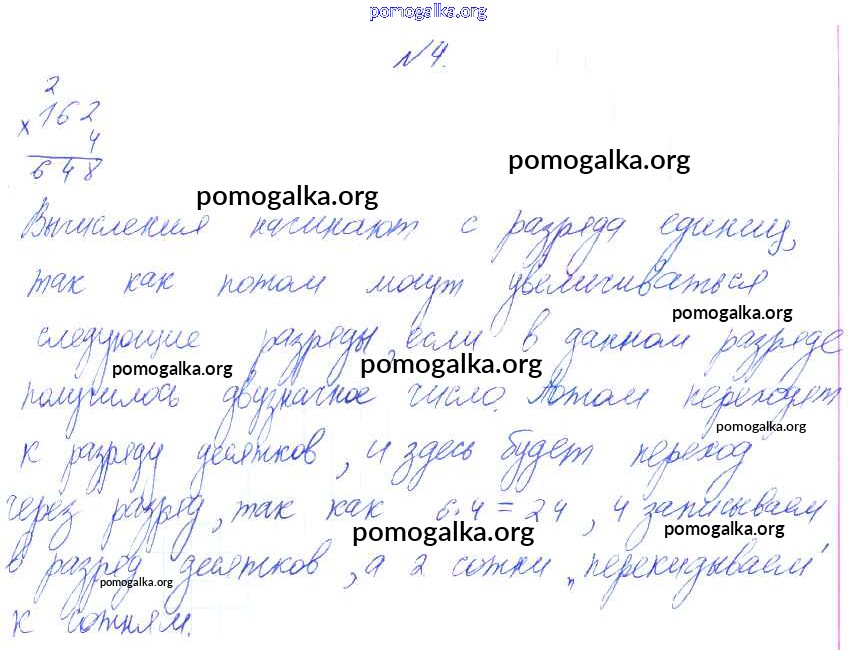 pomogalka.org
№4.
2
× 162
4
648
pomogalka.org
pomogalka.org
Вычисления начинают с разряда единиц,
так как потом могут увеличиваться
pomogalka.org
следующие разряды, если в данном разряде
pomogalka.org
pomogalka.org
получилось двузначное число. Потом переходят
pomogalka.org
к разряду десятков, и здесь будет переход
через разряд, так как 6·4=24, 4 записываем
pomogalka.org
pomogalka.org
в разряд десятков, а 2 сотни „перекидываем"
pomogalka.org
к сотням.